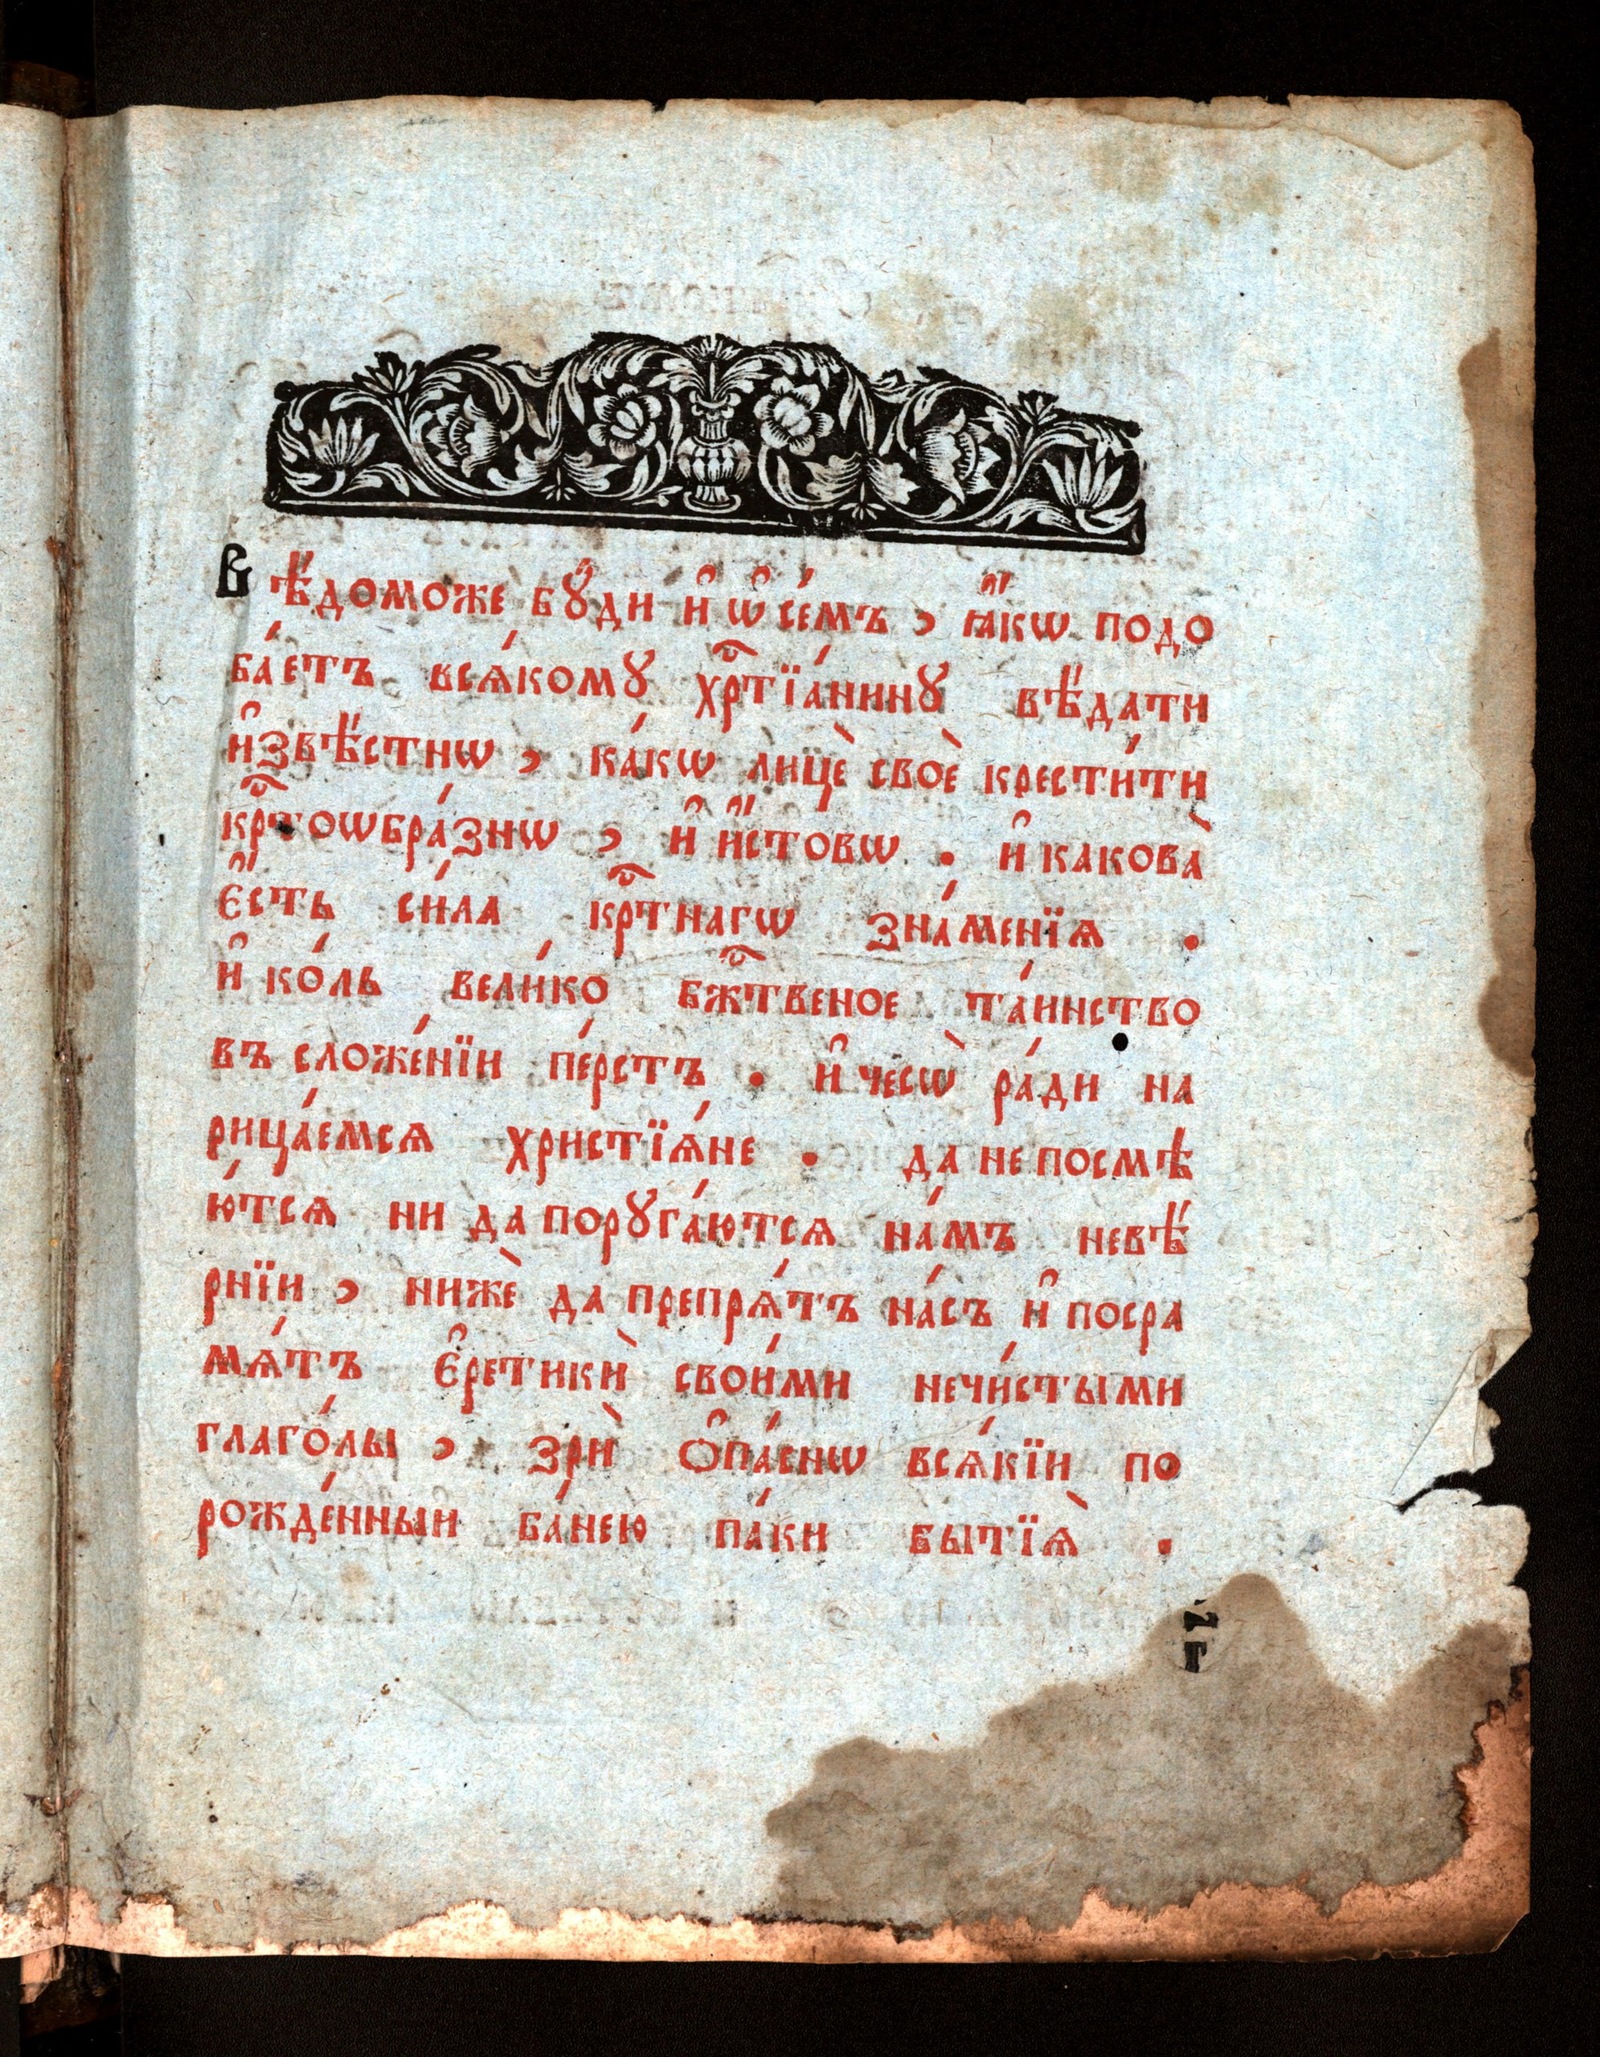 Вѣ́доможе бꙋ́ди и҆ ѡ҆ се́мъ, ꙗ҆́кѡ подо
ба́етъ всѧ́комꙋ хрⷭ҇тїа́нинꙋ вѣ́дати
и҆звѣ́стнѡ, ка́кѡ лицѐ своѐ крести́ти
крⷭ҇тоѡбра́знѡ, и҆ и҆́стовѡ. и҆ какова̀
є҆́сть си́ла крⷭ҇тнагѡ зна́менїѧ.
и҆ ко́ль вели́ко бж҃твеное та́инство
въ сложе́нїи пе́рстъ. и҆ чесѡ̀ ра́ди на
рица́емсѧ христїѧ́не. да не посмѣ
ю́тсѧ ни да порꙋга́ютсѧ на́мъ невѣ́
рнїи, нижѐ да препрѧ́тъ на́съ и҆ посра
мѧ́тъ є҆ретикѝ свои́ми нечи́стыми
глаго́лы, зрѝ ѻ҆па́снѡ всѧ́кїи по
рожде́нныи ба́нею па́ки бытїѧ̀.